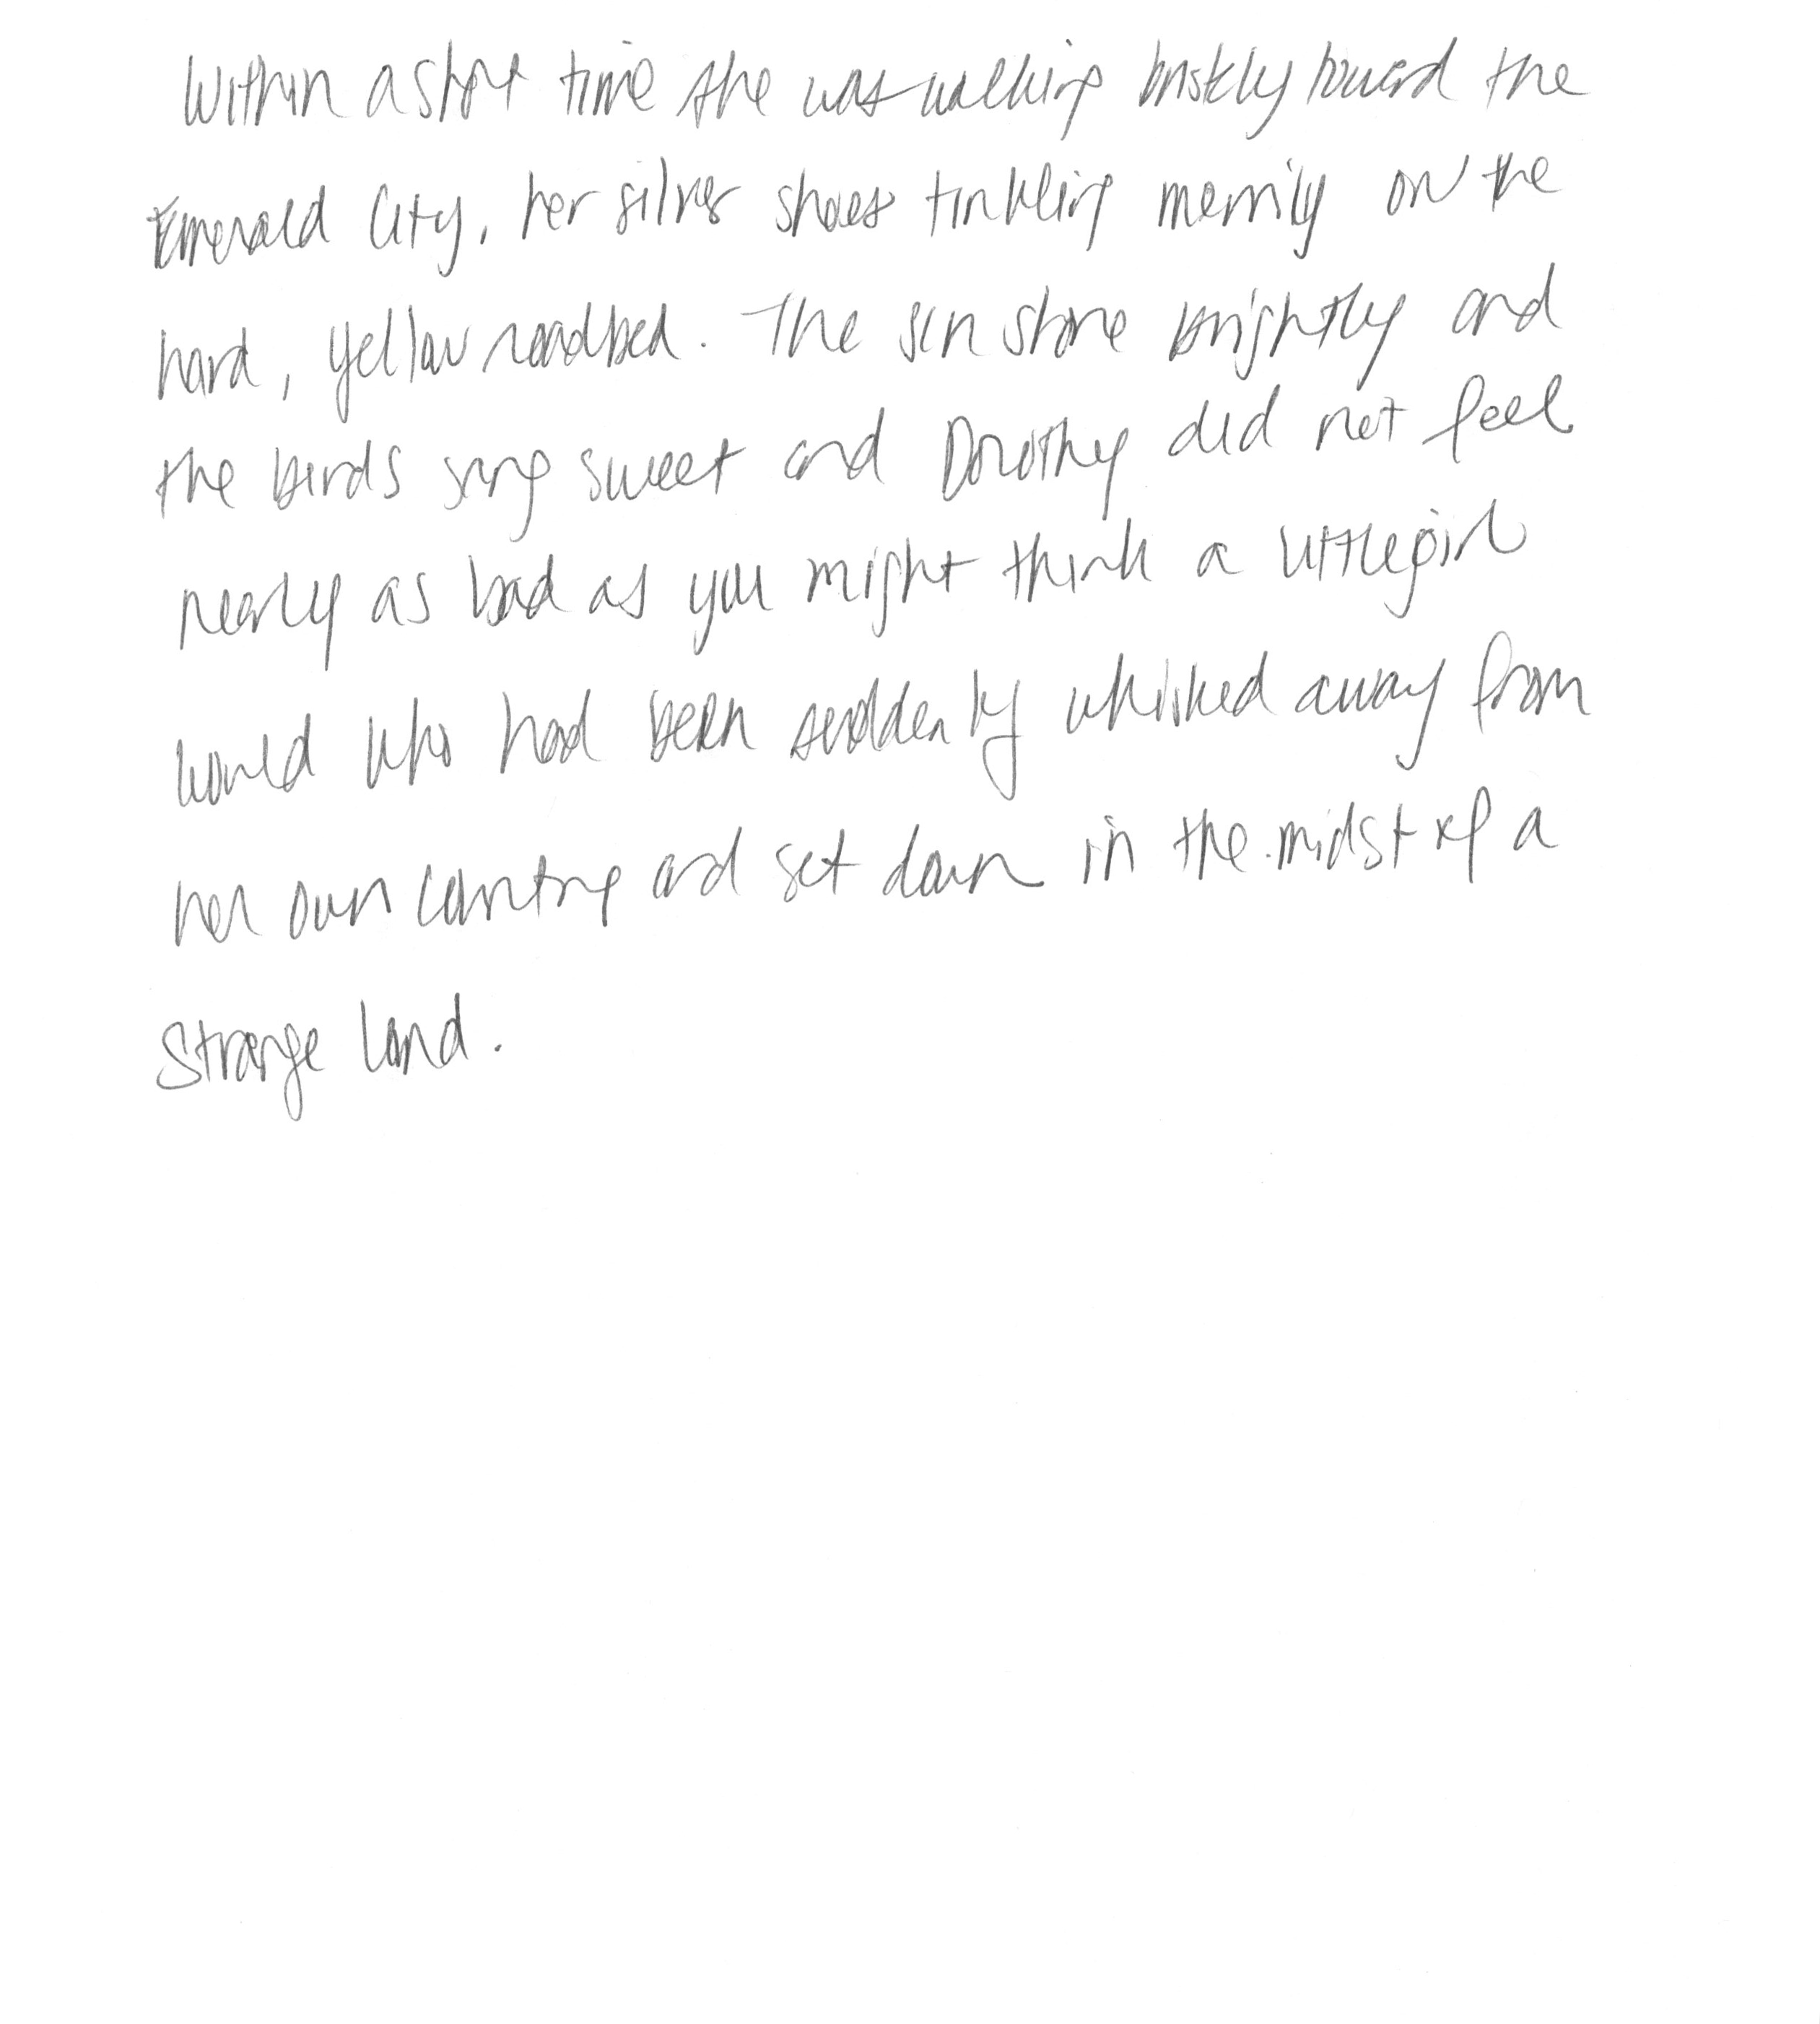 Within a short time she was walking briskly toward the
Emerald City, her silver shoes tinkling merrily on the
hard, yellow roadbed. The sun shone brightly and
the birds sang sweet and Dorothy did not feel
nearly as bad as you might think a little girl
would who had been suddenly whisked away from
her own country and set down in the midst of a
strange land.